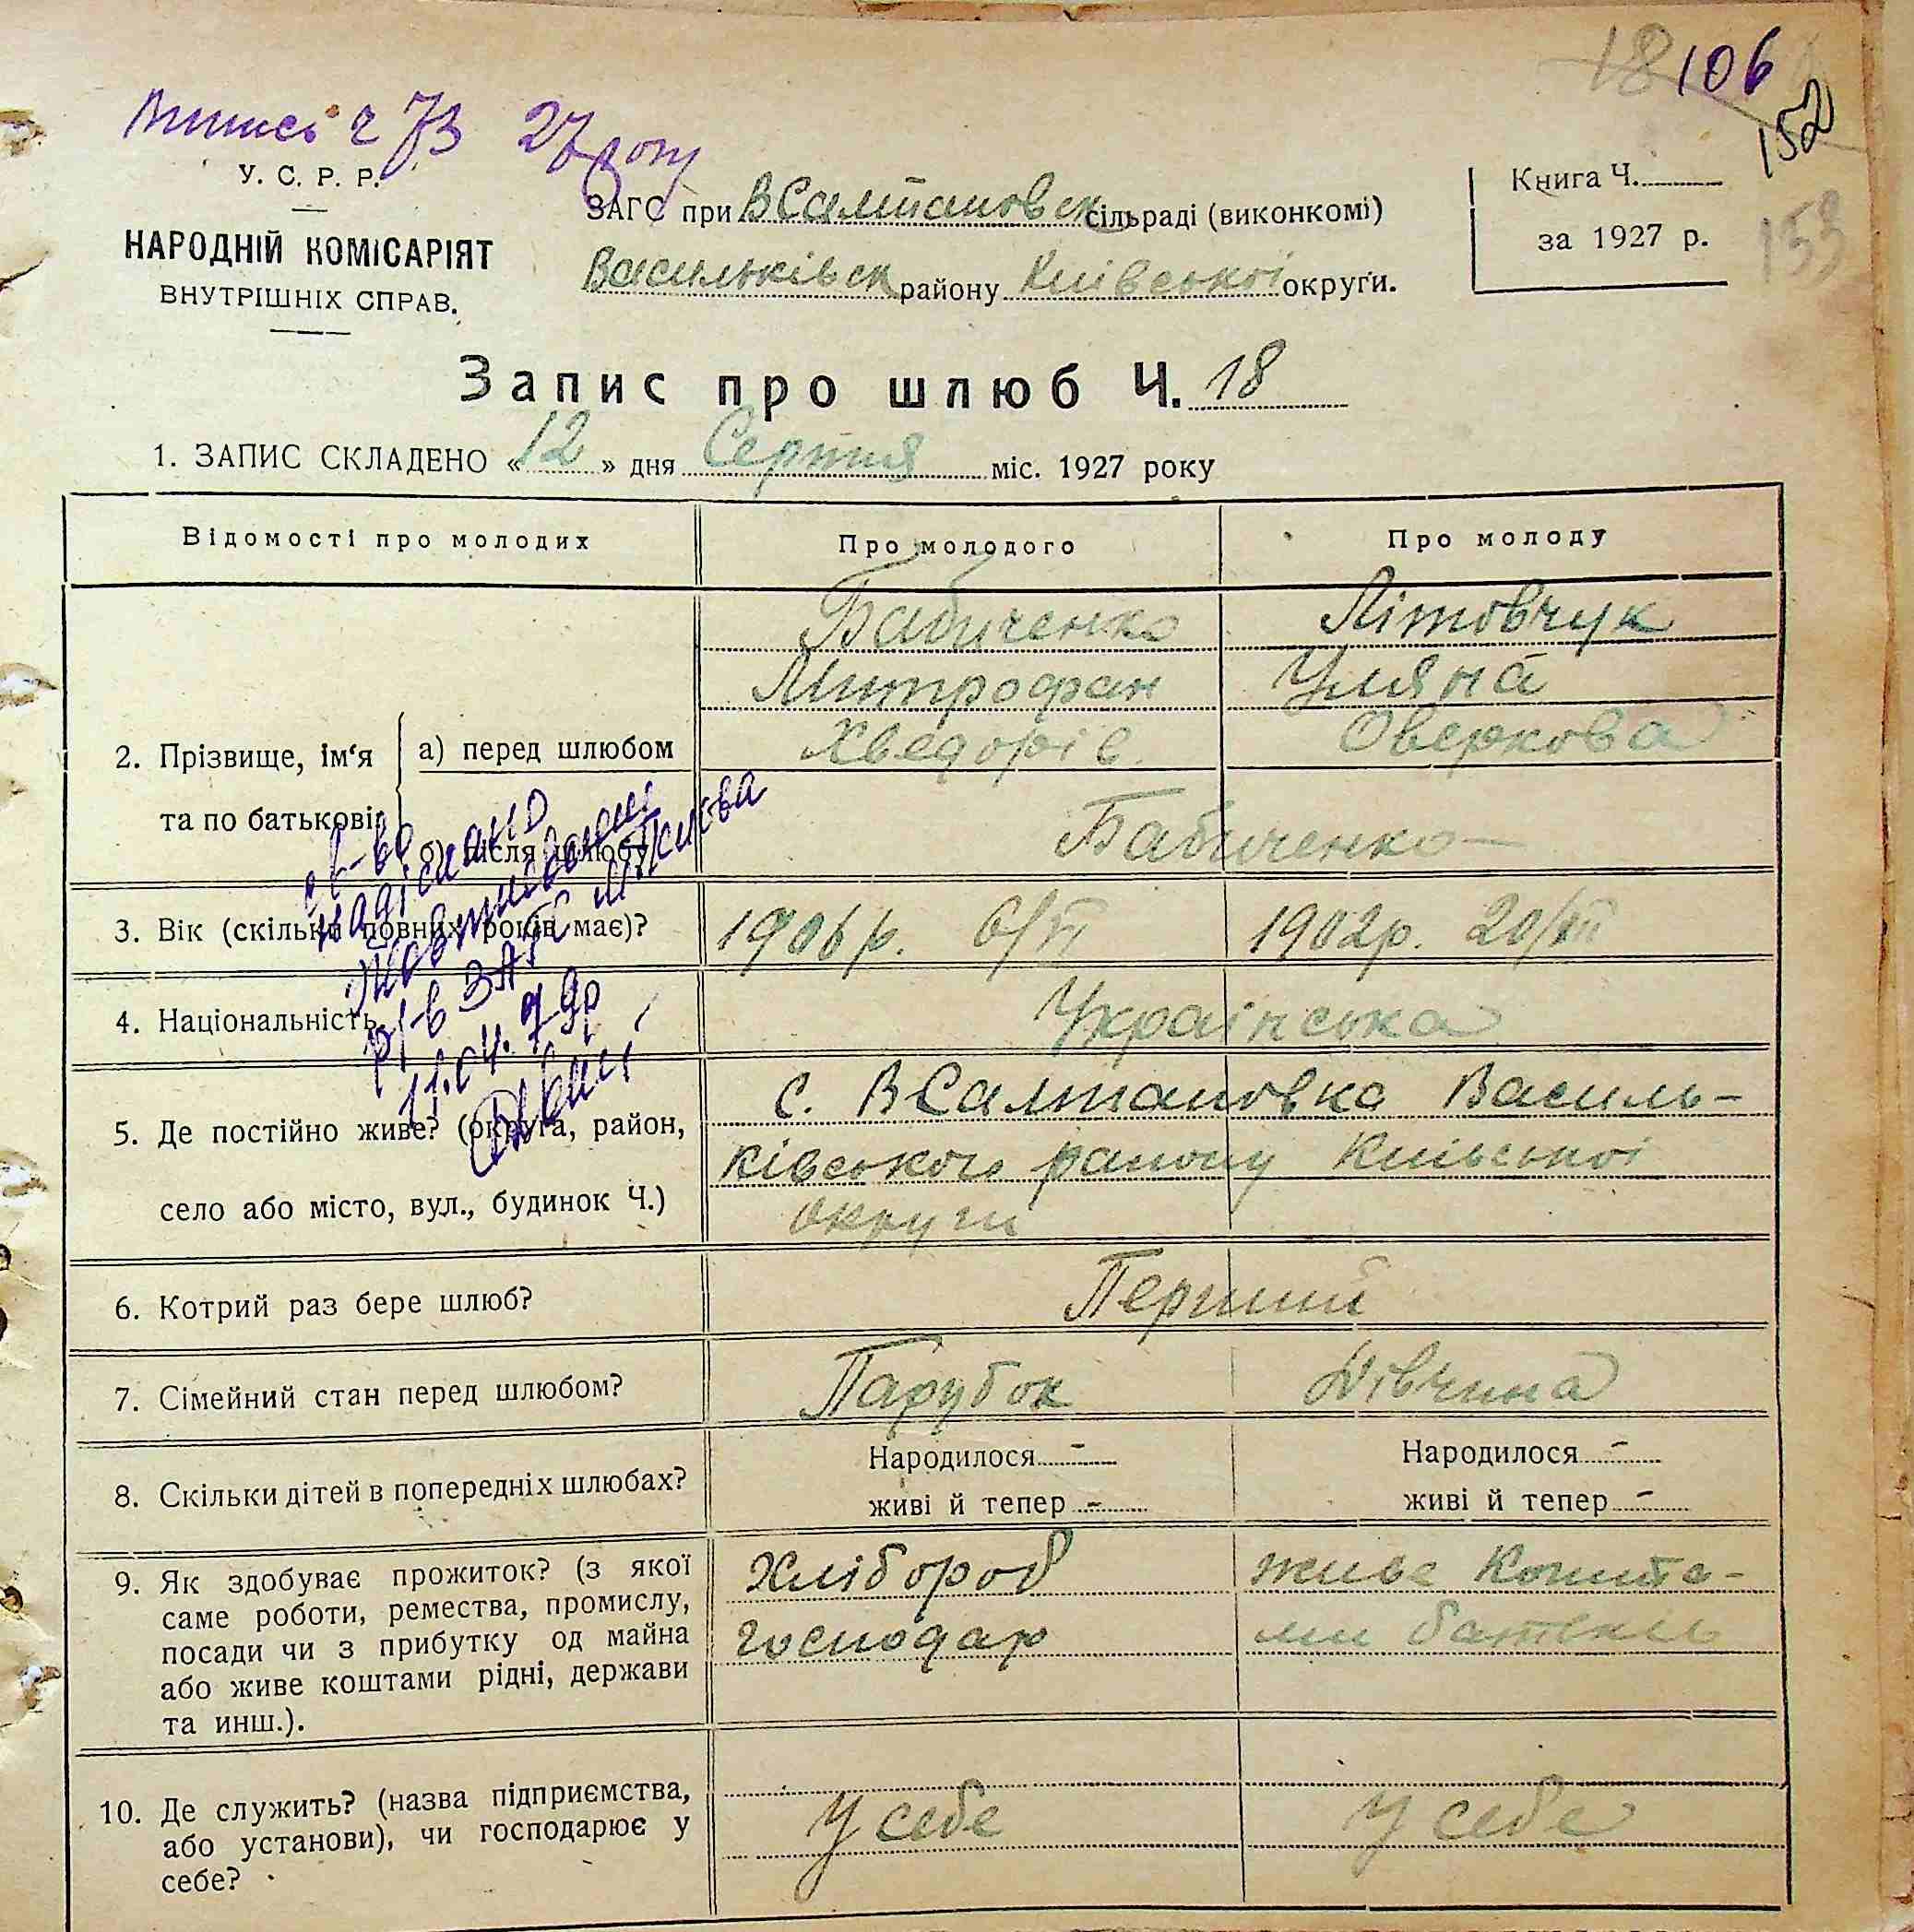 18 106
152
153
ч 73 27 року
У. С. Р. Р.
НАРОДНІЙ КОМІСАРІЯТ
ВНУТРІШНІХ СПРАВ.
ЗАГС при ВСалтановск сільраді (виконкомі)
Васильківск району Київської округи.
Книга Ч.
за 1927 р.
Запис про шлюб Ч. 18
1. ЗАПИС СКЛАДЕНО « 12 » дня Серпня міс. 1927 року
Відомості про молодих Про молодого Про молоду
Бабиченко Літовчук
Митрофан Уляна
2. Прізвище, ім'я а) перед шлюбом Хведорів Оверкова
та по батькові б) після шлюбу Бабиченко
с/в-во
надіслано
Жовтневому
р/в ЗАГС м. Києва
11.04.79р
3. Вік (скільки повних років має)? 1906р. 6/VI 1902р. 20/XII
4. Національність Українська
5. Де постійно живе? (округа, район, с. ВСалтановка Василь-
ківського району Київської
село або місто, вул., будинок Ч.) округи
6. Котрий раз бере шлюб? Перший
7. Сімейний стан перед шлюбом? Парубок Дівчина
8. Скільки дітей в попередніх шлюбах? Народилося - Народилося -
живі й тепер - живі й тепер -
9. Як здобуває прожиток? (з якої Хлібороб живе Кошта-
саме роботи, ремества, промислу,
посади чи з прибутку од майна господар ми батьків
або живе коштами рідні, держави
та инш.).
10. Де служить? (назва підприємства, У себе У себе
або установи), чи господарює у
себе?